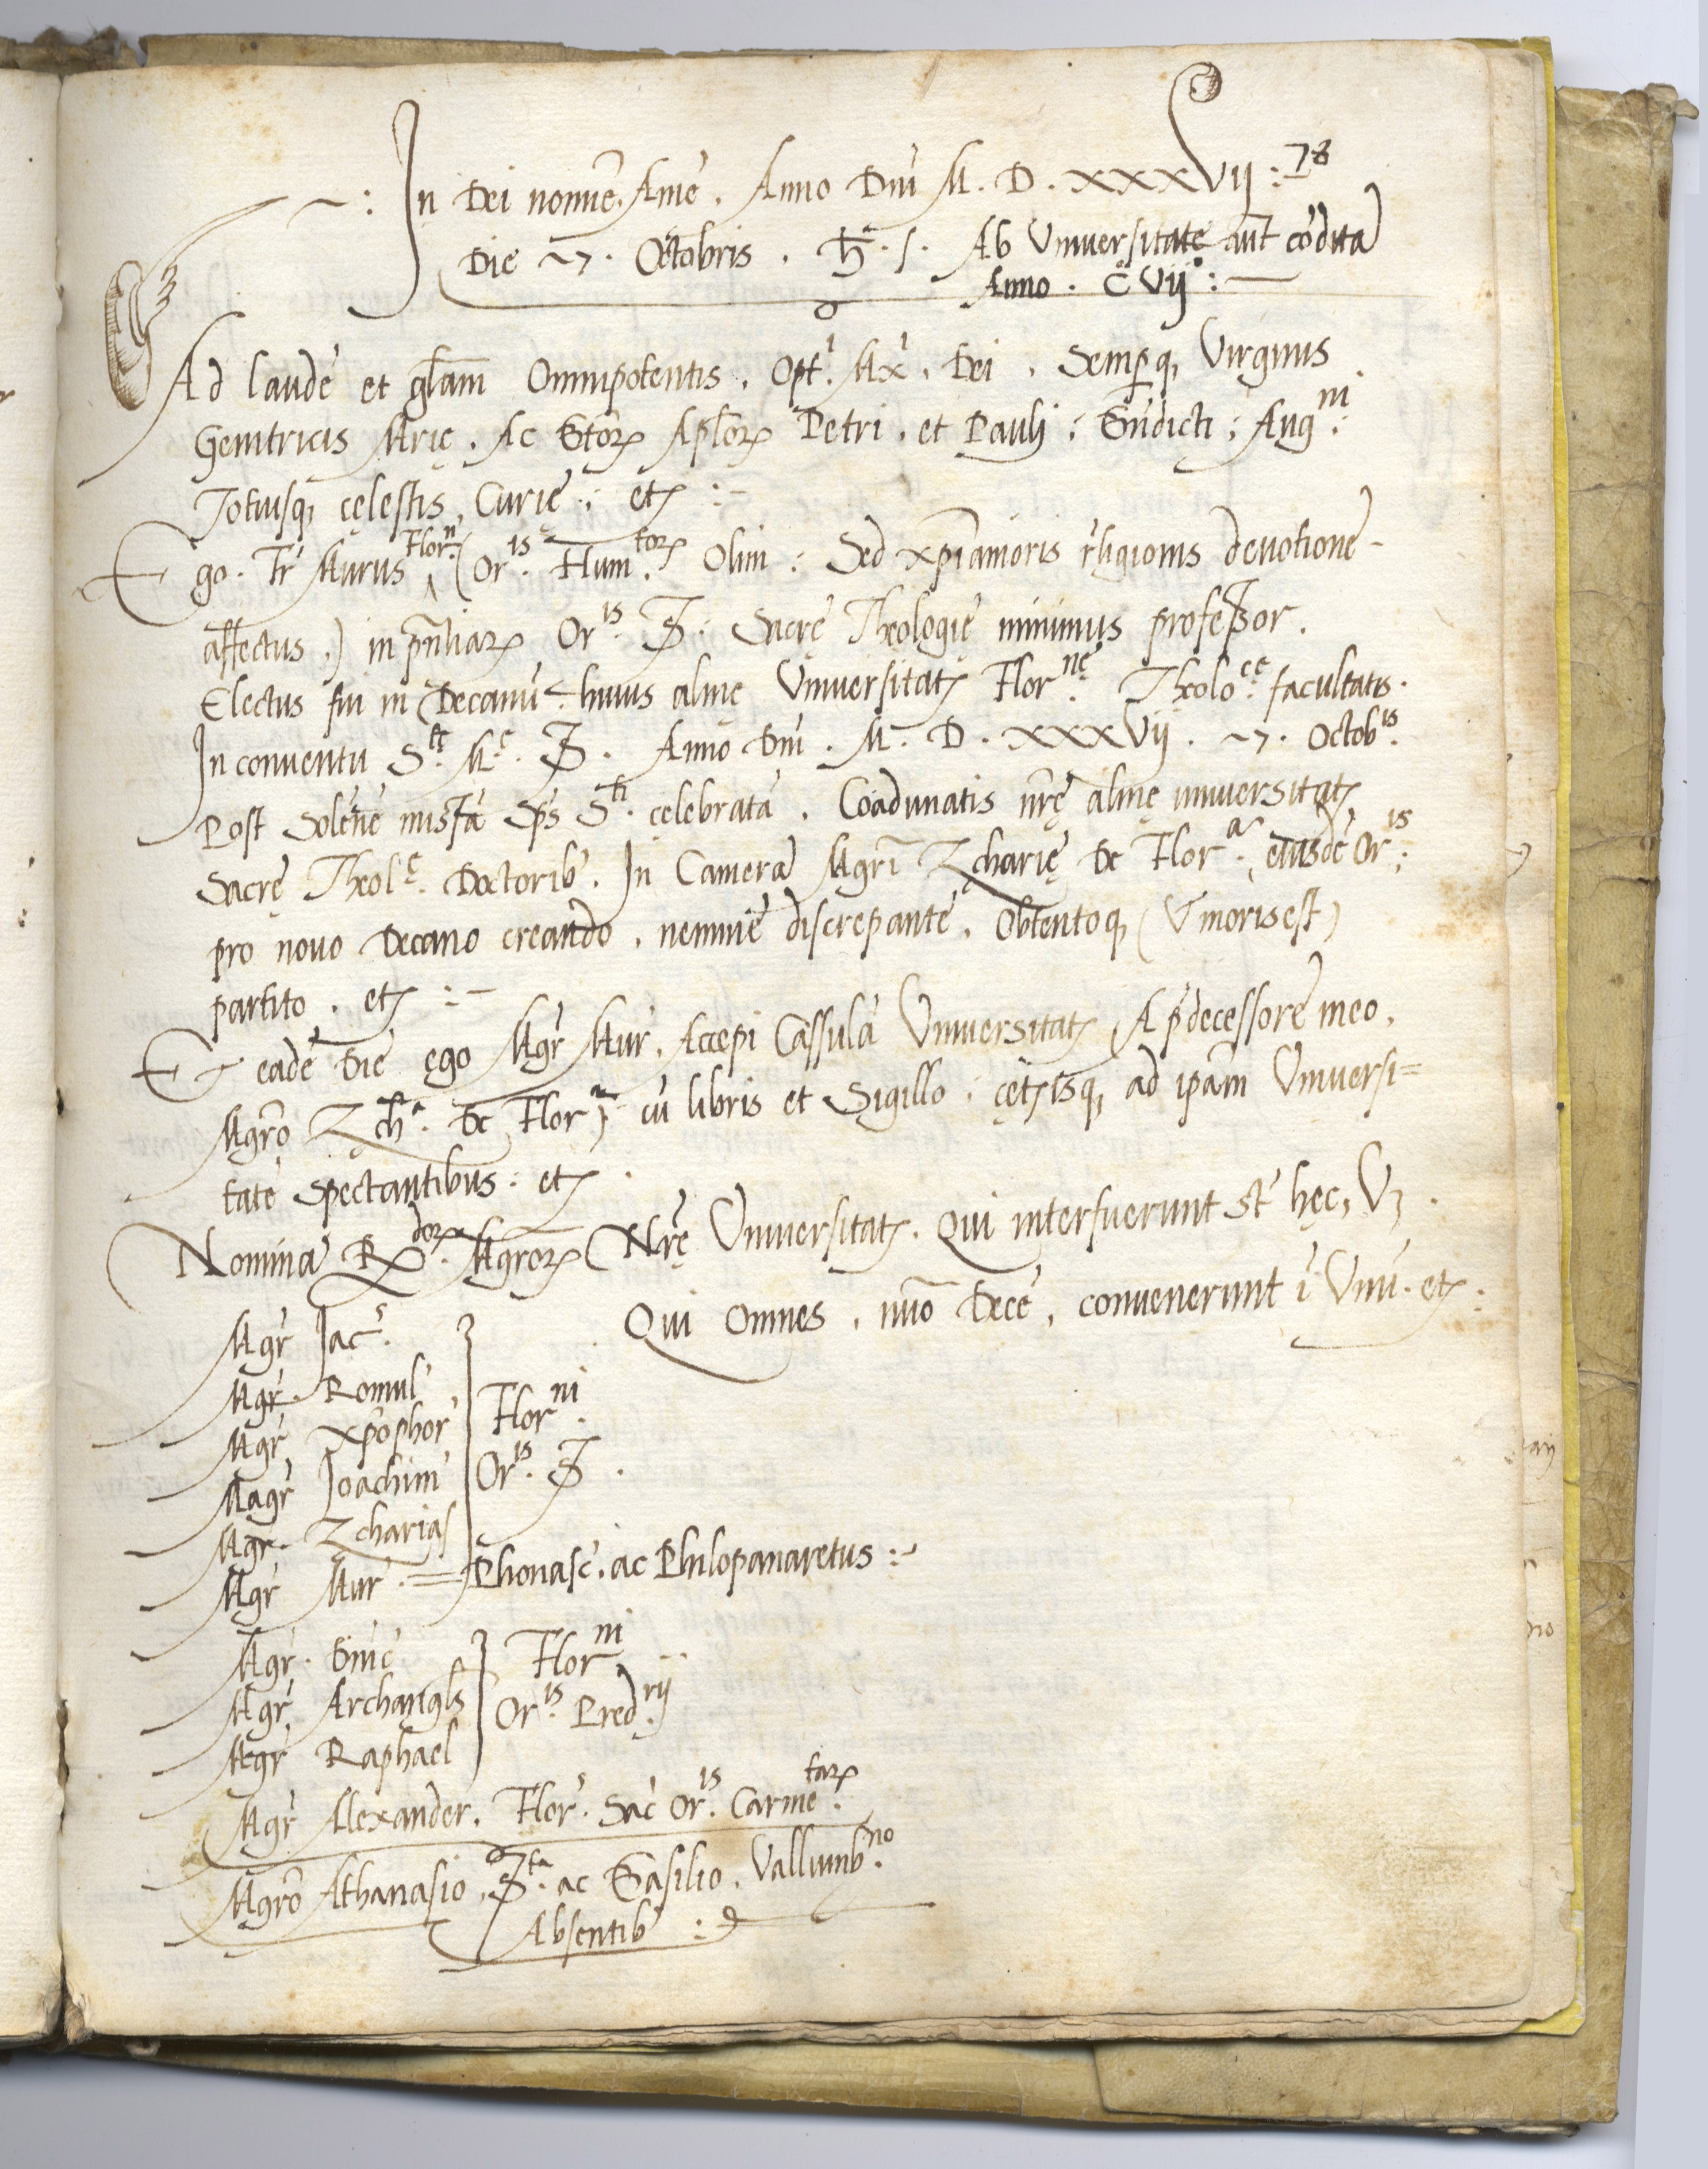 In Dei nomīe. Amē. Anno Dnī M. D. XXXVII : 78
Die 27. Octobris. Ab Universitate aut cōdita
Anno. C VII :
Ad laudē et glām Omnipotentis. Opt. Mx. Dei. Semperq, Virginis
Genitricis Mrię. Ac Stōrꝝ Aplorꝝ Petri. et Pauli : Bndicti : Aug.ni
Totiusq, cęlestis, Curię : etꝭ :-
Ego. Fr Murus Flor.n (Or.is Hum.torꝝ Olim : Sed xp̄ianioris rligionis devotione
affectus.) in pn̄tiarꝝ Or.is S : Sacrę Theologię minimus profeßor.
Electus fui in Decanū huius almę Universitatꝭ Flor.nę Theolo.cę facultatis.
In conventu S.tę M.ę S. Anno Dnī. M. D. XXXVII. 27. Octob.is
Post Solēnē missā Sp̄s S.ti cęlebratā. Coadunatis nr̄ę almę universitatꝭ
Sacrę Theol.ę Doctorib. In Camera Mgrī Zcharię De Flor.a eiusdē Or.is
pro novo Decano creando. neminē discrepante. Obtentoq, (Ut moris est)
partito. etꝭ :-
Et eādē Die ego Mgr Mur. Accepi Cassulā Universitatꝭ, A p̄decessore meo.
Mgrō Zch.a De Flor.a cū libris et Sigillo : cętꝭisq, ad ipām Universi=
tatē Spectantibus : etꝭ.
Nomina R.dorꝝ Mgrorꝝ Nr̄ę Universitatꝭ. Qui interfuerunt St hęc, Vꝫ.
Qui Omnes. nūo Decē. convenerunt ī Unū. etꝭ.
Mgr Jac.
Mgr. Romul
Mgr Xpōphor
Magr Joachim
Mgr. Zcharias
Flor.ni
Or.is S.
Mgr Mur. = Phonasc. ac Philopanaretus :-
Mgr. Dnic
Mgr Archangls
Mgr Raphael
Flor.ni
Or.is Pred.rij
Mgr Alexander. Flor. Sac Or.is Carme.tarꝝ
Mgrō Athanasio, S.ta ac Basilio. Vallumb.no
Absentib :